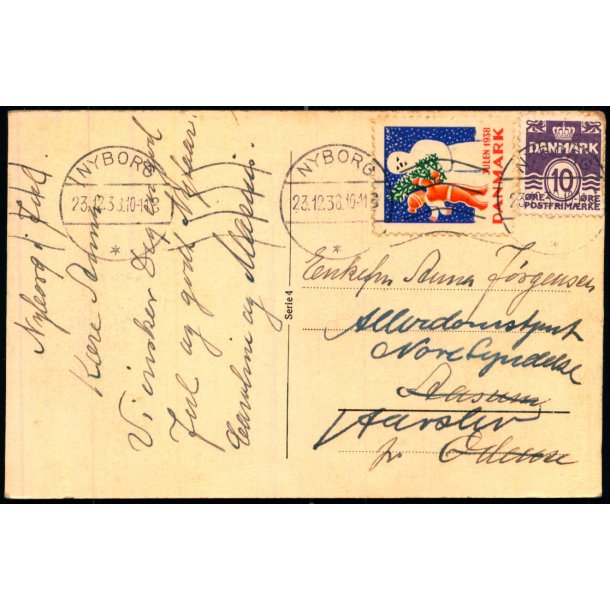 Nyborg d. Jul
Kære Anna
Vi ønsker Dig en god
Jul og godt Nytaar.
Caroline og Marius.
NYBORG
23.12.38.10-11
NYBORG
23.12.38.10-11
JULEN 1938
DANMARK
DANMARK
10
ØRE ØRE
POSTFRIMÆRKE
Serie 4
Enkefru Anna Jørgensen
Nore Lyndelse
Aasum
Aarslev
pr Odense